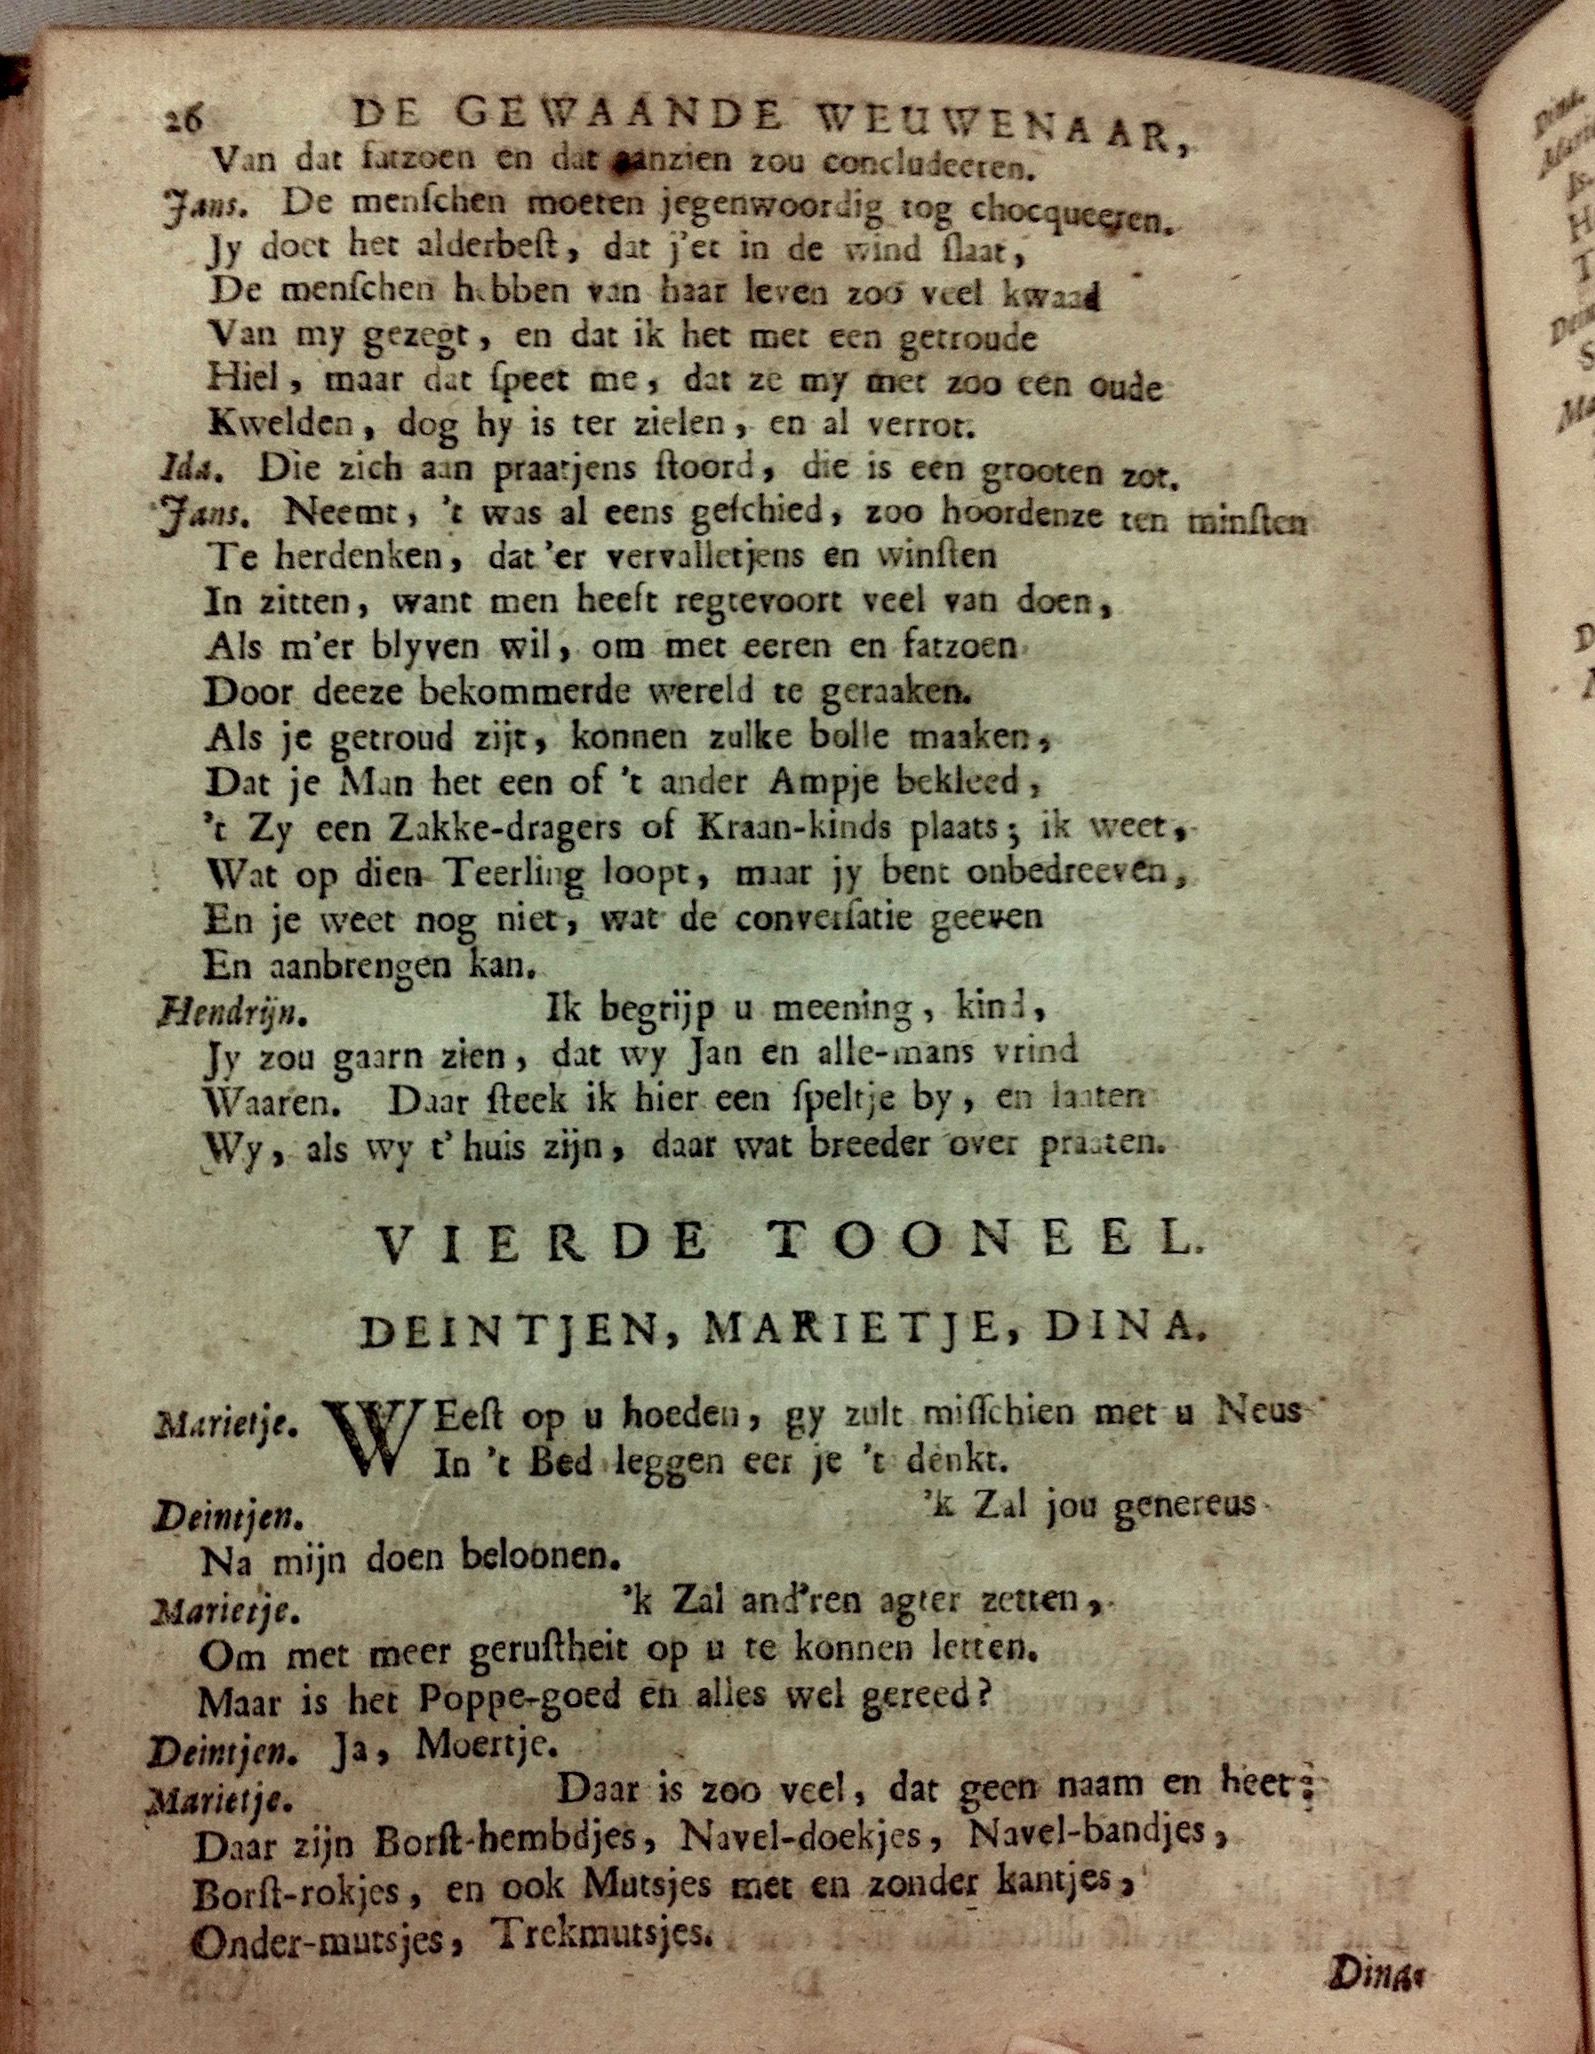 26 DE GEWAANDE WEUWENAAR,
Van dat fatzoen en dat aanzien zou concludeeren.
Jans. De menſchen moeten jegenwoordig tog chocqueeren.
Jy doet het alderbeſt, dat j'et in de wind ſlaat,
De menſchen hebben van haar leven zoo veel kwaad
Van my gezegt, en dat ik het met een getroude
Hiel, maar dat ſpeet me, dat ze my met zoo een oude
Kwelden, dog hy is ter zielen, en al verrot.
Ida. Die zich aan praatjens ſtoord, die is een grooten zot.
Jans. Neemt, 't was al eens geſchied, zoo hoordenze ten minſten
Te herdenken, dat 'er vervalletjens en winſten
In zitten, want men heeft regtevoort veel van doen,
Als m'er blyven wil, om met eeren en fatzoen
Door deeze bekommerde wereld te geraaken.
Als je getroud zijt, konnen zulke bolle maaken,
Dat je Man het een of 't ander Ampje bekleed,
't Zy een Zakke-dragers of Kraan-kinds plaats; ik weet,
Wat op dien Teerling loopt, maar jy bent onbedreeven,
En je weet nog niet, wat de converſatie geeven
En aanbrengen kan.
Hendrijn. Ik begrijp u meening, kind,
Jy zou gaarn zien, dat wy Jan en alle-mans vrind
Waaren. Daar ſteek ik hier een ſpeltje by, en laaten
Wy, als wy t'huis zijn, daar wat breeder over praaten.
VIERDE TOONEEL.
DEINTJEN, MARIETJE, DINA.
Marietje. WEeſt op u hoeden, gy zult miſſchien met u Neus
In 't Bed leggen eer je 't denkt.
Deintjen. 'k Zal jou genereus
Na mijn doen beloonen.
Marietje. 'k Zal and'ren agter zetten,
Om met meer geruſtheit op u te konnen letten.
Maar is het Poppe-goed en alles wel gereed?
Deintjen. Ja, Moertje.
Marietje. Daar is zoo veel, dat geen naam en heet:
Daar zijn Borſt-hembdjes, Navel-doekjes, Navel-bandjes,
Borſt-rokjes, en ook Mutsjes met en zonder kantjes,
Onder-mutsjes, Trekmutsjes.
Dina.